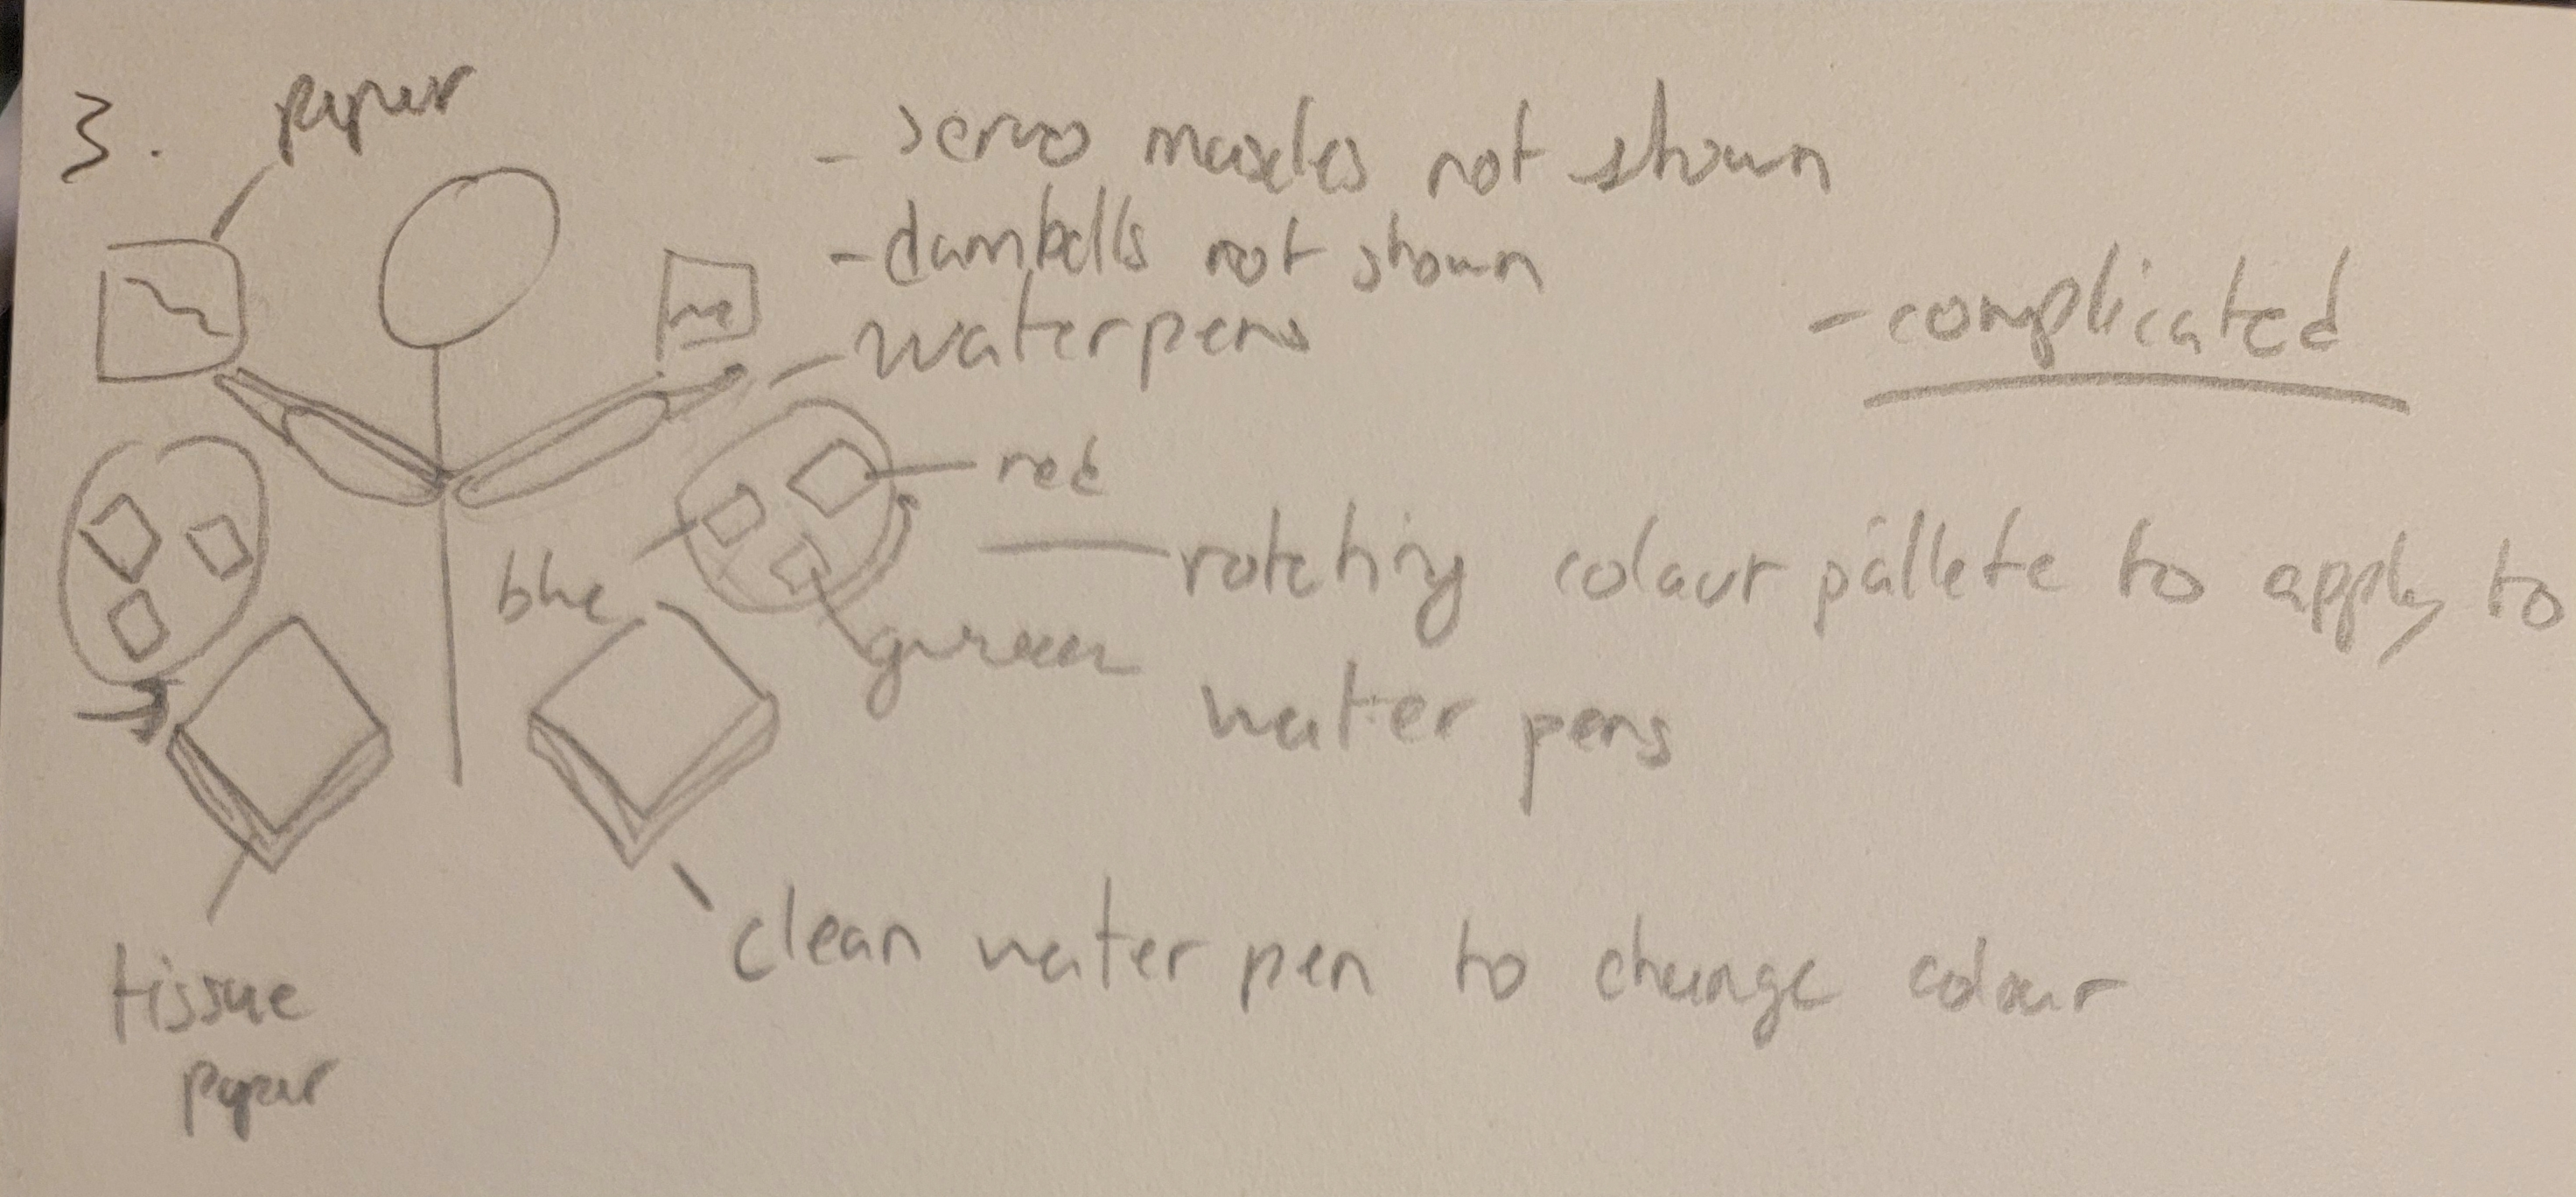 3.
paper
- servo muscles not shown
- dumbells not shown
waterpens
- complicated
red
blue
green
rotating colour pallete to apply to
water pens
clean water pen to change colour
tissue
paper